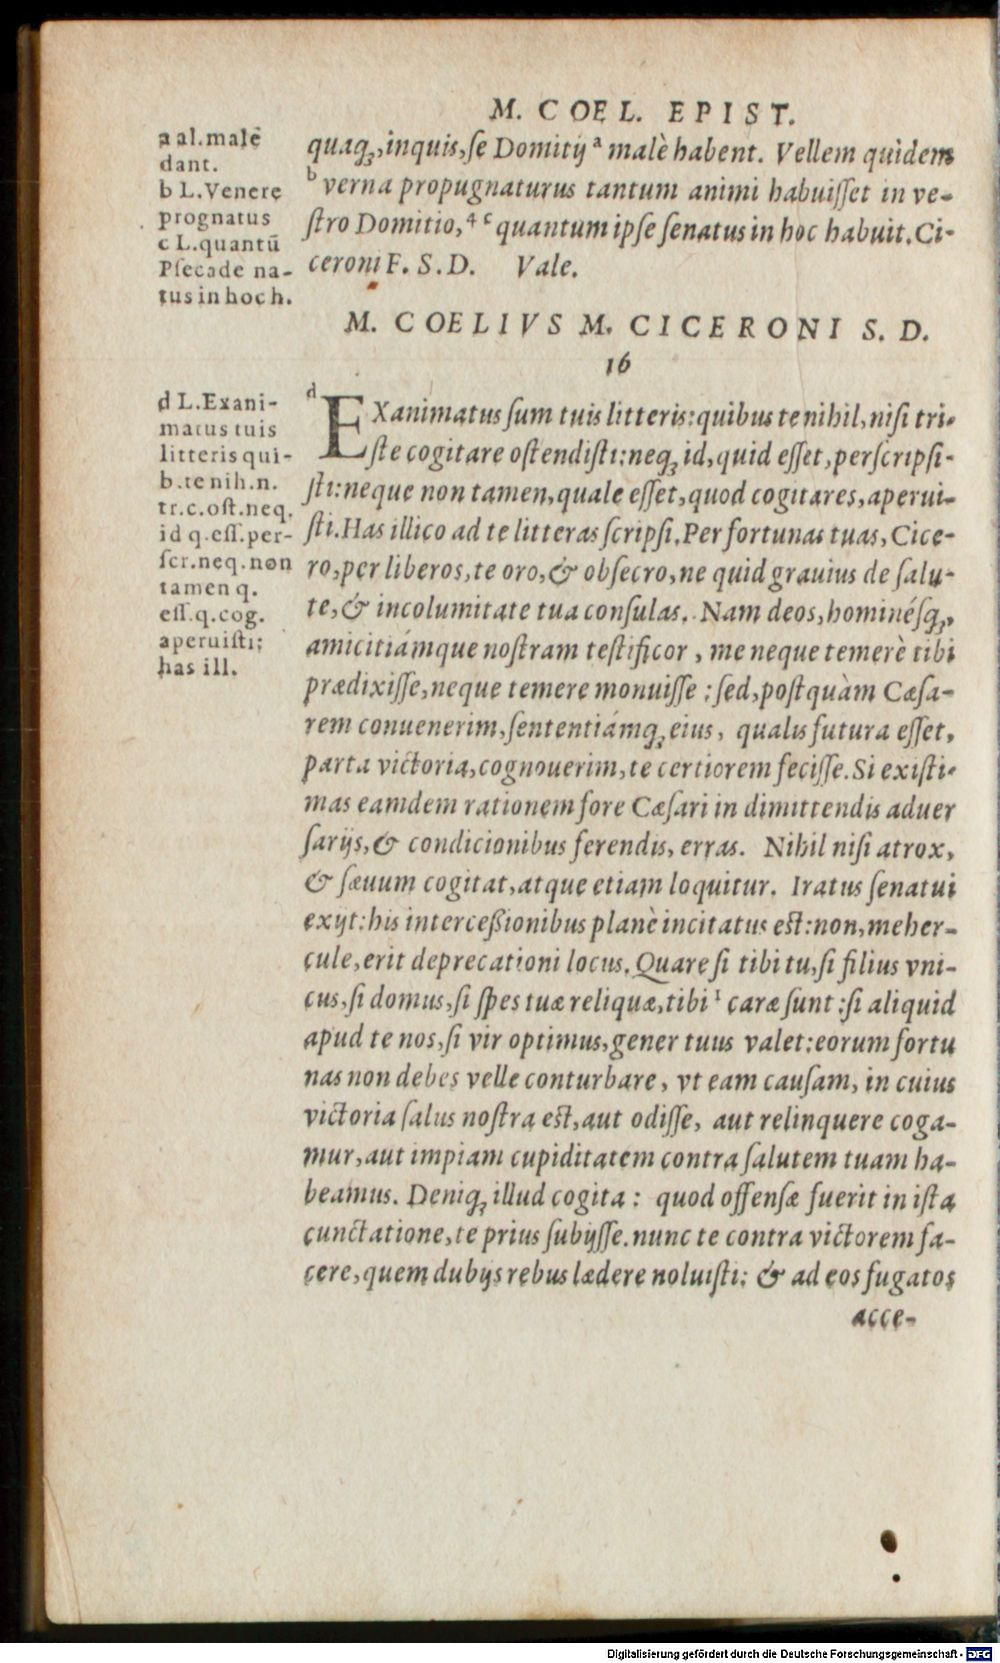 M. COEL. EPIST.
a al. malè
dant.
b L. Venere
prognatus
c L. quantū
Psecade na-
tus in hoc h.
quaq;, inquis, se Domitij ª malè habent. Vellem quidem
ᵇ verna propugnaturus tantum animi habuisset in ve-
stro Domitio,⁴ ᶜ quantum ipse senatus in hoc habuit. Ci-
ceroni F. S. D. Vale.
M. COELIVS M. CICERONI S. D.
16
d L. Exani-
matus tuis
litteris qui-
b. te nih. n.
tr. c. ost. neq.
id q. ess. per-
scr. neq. non
tamen q.
ess. q. cog.
aperuisti:
has ill.
ᵈ EXanimatus sum tuis litteris: quibus te nihil, nisi tri-
ste cogitare ostendisti: neq; id, quid esset, perscripsi-
sti: neque non tamen, quale esset, quod cogitares, aperui-
sti. Has illico ad te litteras scripsi. Per fortunas tuas, Cice-
ro, per liberos, te oro, & obsecro, ne quid grauius de salu-
te, & incolumitate tua consulas. Nam deos, hominésq;,
amicitiámque nostram testificor, me neque temerè tibi
prædixisse, neque temere monuisse: sed, postquàm Cæsa-
rem conuenerim, sententiámq; eius, qualis futura esset,
parta victoria, cognouerim, te certiorem fecisse. Si existi-
mas eamdem rationem fore Cæsari in dimittendis aduer
sarijs, & condicionibus ferendis, erras. Nihil nisi atrox,
& sæuum cogitat, atque etiam loquitur. Iratus senatui
exijt: his intercessionibus planè incitatus est: non, meher-
cule, erit deprecationi locus. Quare si tibi tu, si filius vni-
cus, si domus, si spes tuæ reliquæ, tibi ¹ caræ sunt: si aliquid
apud te nos, si vir optimus, gener tuus valet: eorum fortu
nas non debes velle conturbare, vt eam causam, in cuius
victoria salus nostra est, aut odisse, aut relinquere coga-
mur, aut impiam cupiditatem contra salutem tuam ha-
beamus. Deniq; illud cogita: quod offensæ fuerit in ista
cunctatione, te prius subijsse. nunc te contra victorem fa-
cere, quem dubijs rebus lædere noluisti: & ad eos fugatos
acce-
Digitalisierung gefördert durch die Deutsche Forschungsgemeinschaft - DFG